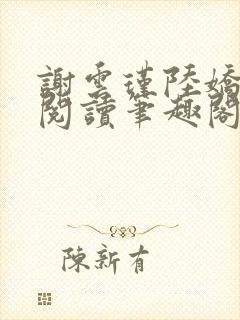 謝雲瑾陸嬌
閱讀筆趣閣
陳新有